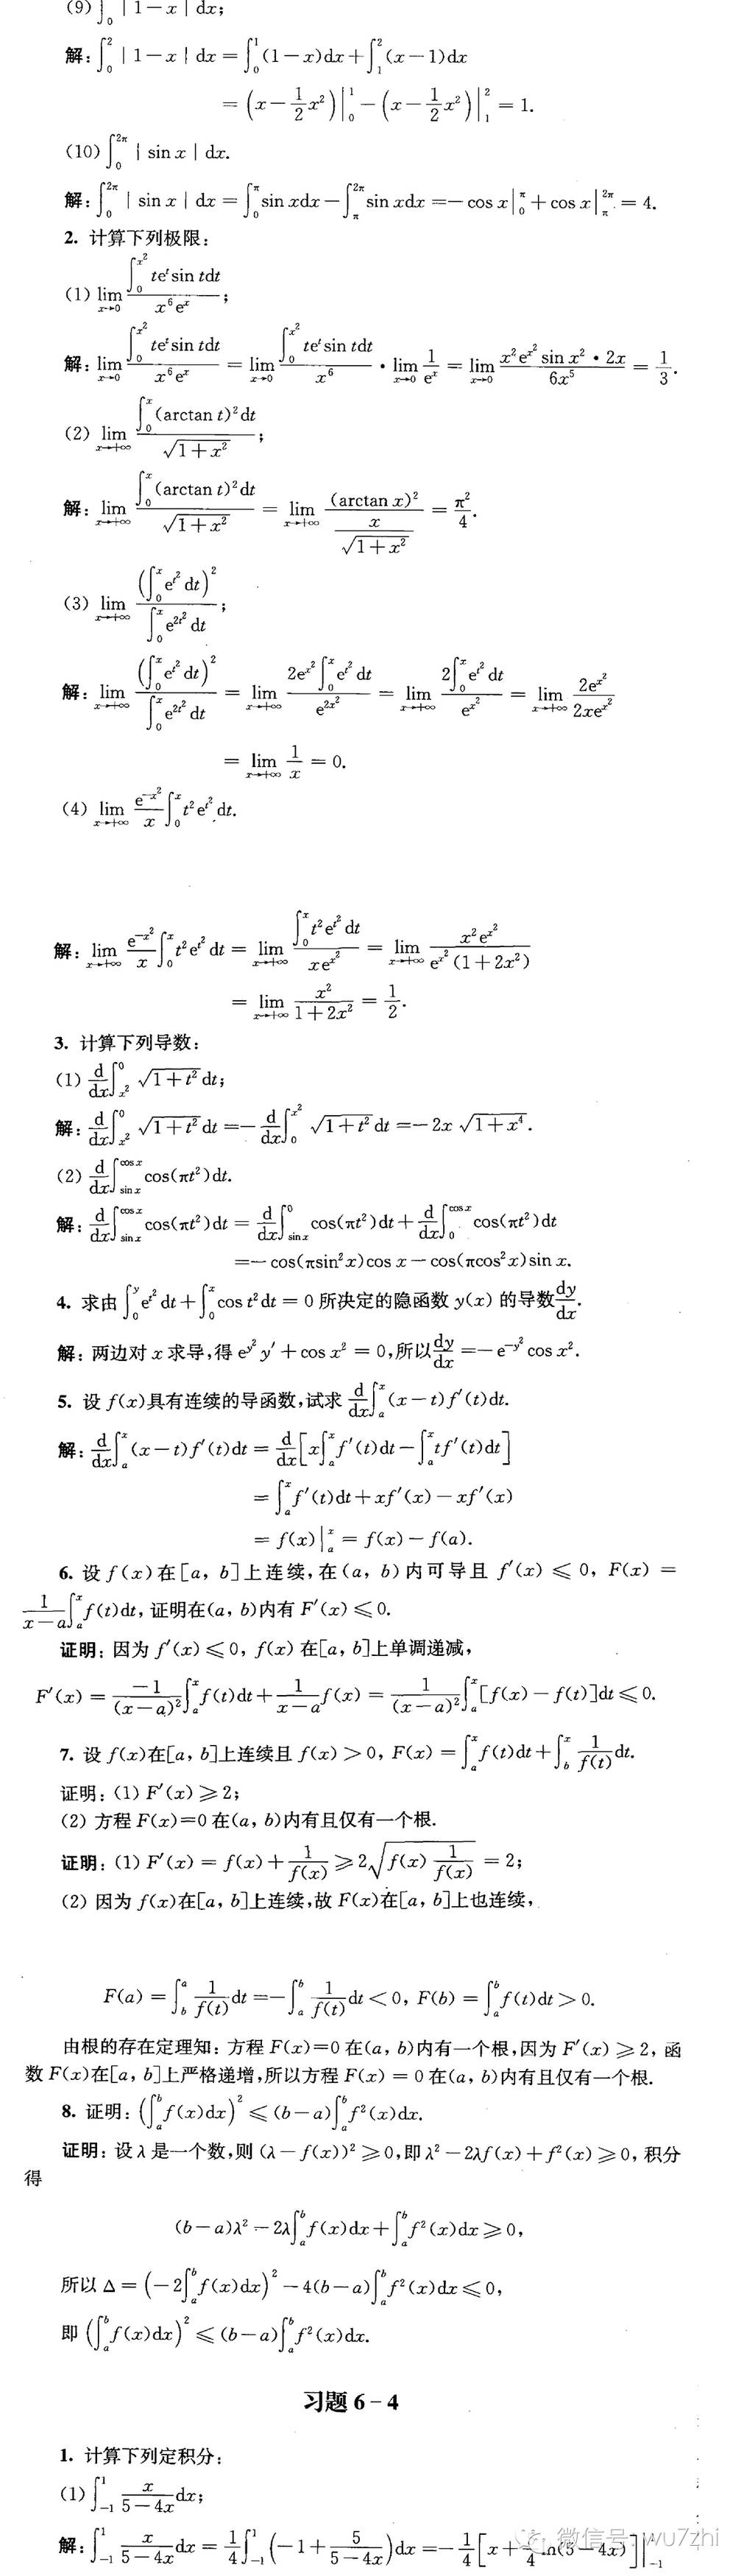 (9) ∫₀ | 1－x | dx;
解: ∫₀² | 1－x | dx = ∫₀¹ (1－x)dx + ∫₁² (x－1)dx
= (x－½x²)|₀¹ － (x－½x²)|₁² = 1.
(10) ∫₀^{2π} | sin x | dx.
解: ∫₀^{2π} | sin x | dx = ∫₀^π sin xdx － ∫_π^{2π} sin xdx =－ cos x|₀^π + cos x|_π^{2π} = 4.
2. 计算下列极限:
(1) lim_{x→0} (∫₀^{x²} te^t sin tdt)/(x⁶e^x);
解: lim_{x→0} (∫₀^{x²} te^t sin tdt)/(x⁶e^x) = lim_{x→0} (∫₀^{x²} te^t sin tdt)/x⁶ · lim_{x→0} 1/e^x = lim_{x→0} (x²e^{x²} sin x² · 2x)/(6x⁵) = 1/3.
(2) lim_{x→+∞} (∫₀^x (arctan t)²dt)/√(1+x²);
解: lim_{x→+∞} (∫₀^x (arctan t)²dt)/√(1+x²) = lim_{x→+∞} (arctan x)²/(x/√(1+x²)) = π²/4.
(3) lim_{x→+∞} (∫₀^x e^{t²} dt)²/(∫₀^x e^{2t²} dt);
解: lim_{x→+∞} (∫₀^x e^{t²} dt)²/(∫₀^x e^{2t²} dt) = lim_{x→+∞} (2e^{x²}∫₀^x e^{t²} dt)/e^{2x²} = lim_{x→+∞} (2∫₀^x e^{t²} dt)/e^{x²} = lim_{x→+∞} 2e^{x²}/(2xe^{x²})
= lim_{x→+∞} 1/x = 0.
(4) lim_{x→+∞} (e^{-x²}/x)∫₀^x t²e^{t²} dt.
解: lim_{x→+∞} (e^{-x²}/x)∫₀^x t²e^{t²} dt = lim_{x→+∞} (∫₀^x t²e^{t²} dt)/(xe^{x²}) = lim_{x→+∞} x²e^{x²}/(e^{x²}(1+2x²))
= lim_{x→+∞} x²/(1+2x²) = 1/2.
3. 计算下列导数:
(1) d/dx ∫_{x²}^0 √(1+t²) dt;
解: d/dx ∫_{x²}^0 √(1+t²) dt =－ d/dx ∫₀^{x²} √(1+t²) dt =－2x √(1+x⁴).
(2) d/dx ∫_{sin x}^{cos x} cos(πt²)dt.
解: d/dx ∫_{sin x}^{cos x} cos(πt²)dt = d/dx ∫_{sin x}^0 cos(πt²)dt + d/dx ∫₀^{cos x} cos(πt²)dt
=－ cos(πsin²x)cos x－cos(πcos²x)sin x.
4. 求由 ∫₀^y e^{t²} dt+∫₀^x cos t²dt = 0 所决定的隐函数 y(x) 的导数 dy/dx.
解: 两边对 x 求导,得 e^{y²} y′+cos x² = 0,所以 dy/dx =－e^{-y²} cos x².
5. 设 f(x)具有连续的导函数,试求 d/dx ∫_a^x (x－t)f′(t)dt.
解: d/dx ∫_a^x (x－t)f′(t)dt = d/dx [x∫_a^x f′(t)dt－∫_a^x tf′(t)dt]
= ∫_a^x f′(t)dt+xf′(x)－xf′(x)
= f(x)|_a^x = f(x)－f(a).
6. 设 f(x)在[a, b]上连续,在(a, b)内可导且 f′(x) ≤ 0, F(x) =
1/(x－a) ∫_a^x f(t)dt, 证明在(a, b)内有 F′(x)≤0.
证明: 因为 f′(x)≤0, f(x)在[a, b]上单调递减,
F′(x) = －1/(x－a)² ∫_a^x f(t)dt+1/(x－a) f(x) = 1/(x－a)² ∫_a^x [f(x)－f(t)]dt≤0.
7. 设 f(x)在[a, b]上连续且 f(x)＞0, F(x) = ∫_a^x f(t)dt+∫_b^x 1/f(t) dt.
证明: (1) F′(x)≥2;
(2) 方程 F(x)=0 在(a, b)内有且仅有一个根.
证明: (1) F′(x) = f(x)+1/f(x) ≥2√(f(x) 1/f(x)) = 2;
(2) 因为 f(x)在[a, b]上连续,故 F(x)在[a, b]上也连续,
F(a) = ∫_b^a 1/f(t) dt =－∫_a^b 1/f(t) dt＜0, F(b) = ∫_a^b f(t)dt＞0.
由根的存在定理知: 方程 F(x)=0 在(a, b)内有一个根,因为 F′(x)≥2, 函
数 F(x)在[a, b]上严格递增,所以方程 F(x) = 0 在(a, b)内有且仅有一个根.
8. 证明: (∫_a^b f(x)dx)² ≤(b－a)∫_a^b f²(x)dx.
证明: 设 λ 是一个数,则 (λ－f(x))²≥0,即 λ²－2λf(x)+f²(x)≥0, 积分
得
(b－a)λ²－2λ∫_a^b f(x)dx+∫_a^b f²(x)dx≥0,
所以 Δ = (－2∫_a^b f(x)dx)²－4(b－a)∫_a^b f²(x)dx≤0,
即 (∫_a^b f(x)dx)² ≤(b－a)∫_a^b f²(x)dx.
习题 6－4
1. 计算下列定积分:
(1) ∫_{-1}^1 x/(5－4x) dx;
解: ∫_{-1}^1 x/(5－4x) dx = ¼∫_{-1}^1 (－1+5/(5－4x))dx =－¼[x+ (5－4x)]|_{-1}^1
微信号: wu7zhi